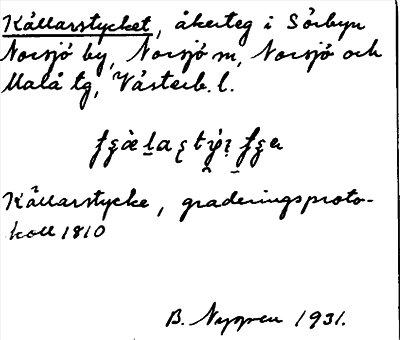 Källarstycket, åkerteg i Sörbyn
Norsjö by, Norsjö sn, Norsjö och
Malå tg, Västerb. l.
Källarstycke, graderingsproto-
koll 1810
B. Nygren 1931.